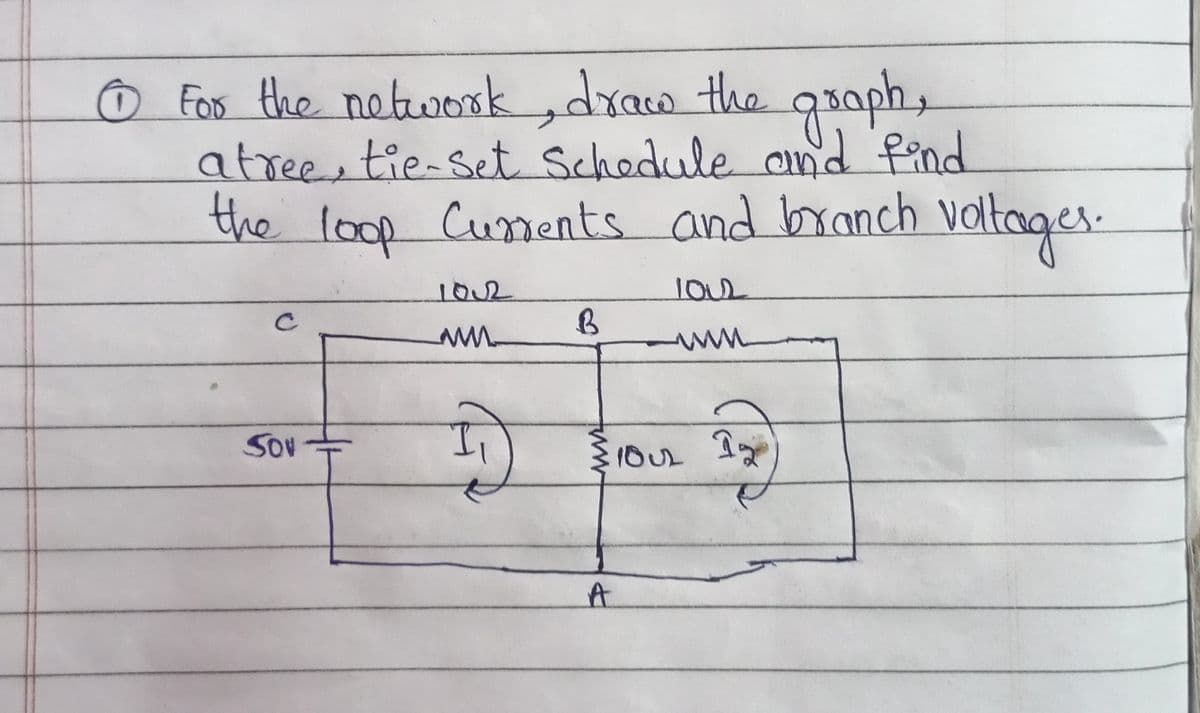 ① For the network, draw the graph,
atree, tie-set Schedule and find
the loop Currents and branch voltages.
10Ω 10Ω
C B
50V I₁ 10Ω I2
A